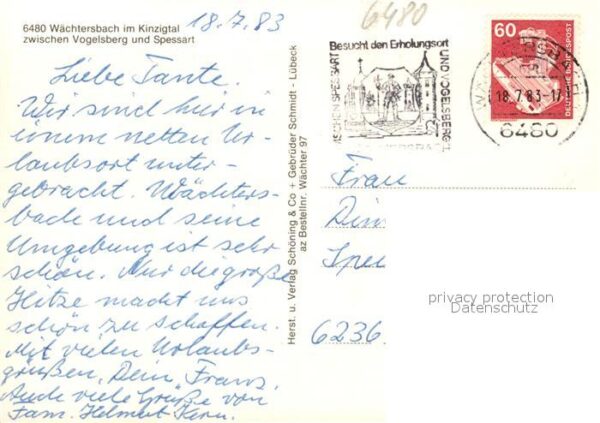 6480 Wächtersbach im Kinzigtal
zwischen Vogelsberg und Spessart
18.7.83
Liebe Tante.
Wir sind hier in
einem netten Ur-
laubsort unter-
gebracht. Wächters-
bach und seine
Umgebung ist sehr
schön. Nur die große
Hitze macht uns
schön zu schaffen.
Mit vielen Urlaubs-
grüßen, Dein Frans.
Auch viele Grüße von
Fam. Helmut Kern.
Herst. u. Verlag Schöning & Co + Gebrüder Schmidt - Lübeck
az Bestellnr. Wächter 97
6480
Besucht den Erholungsort
UND VOGELSBERG
60
DEUTSCHE BUNDESPOST
18.7.83-17
6480
Frau
6236
privacy protection
Datenschutz